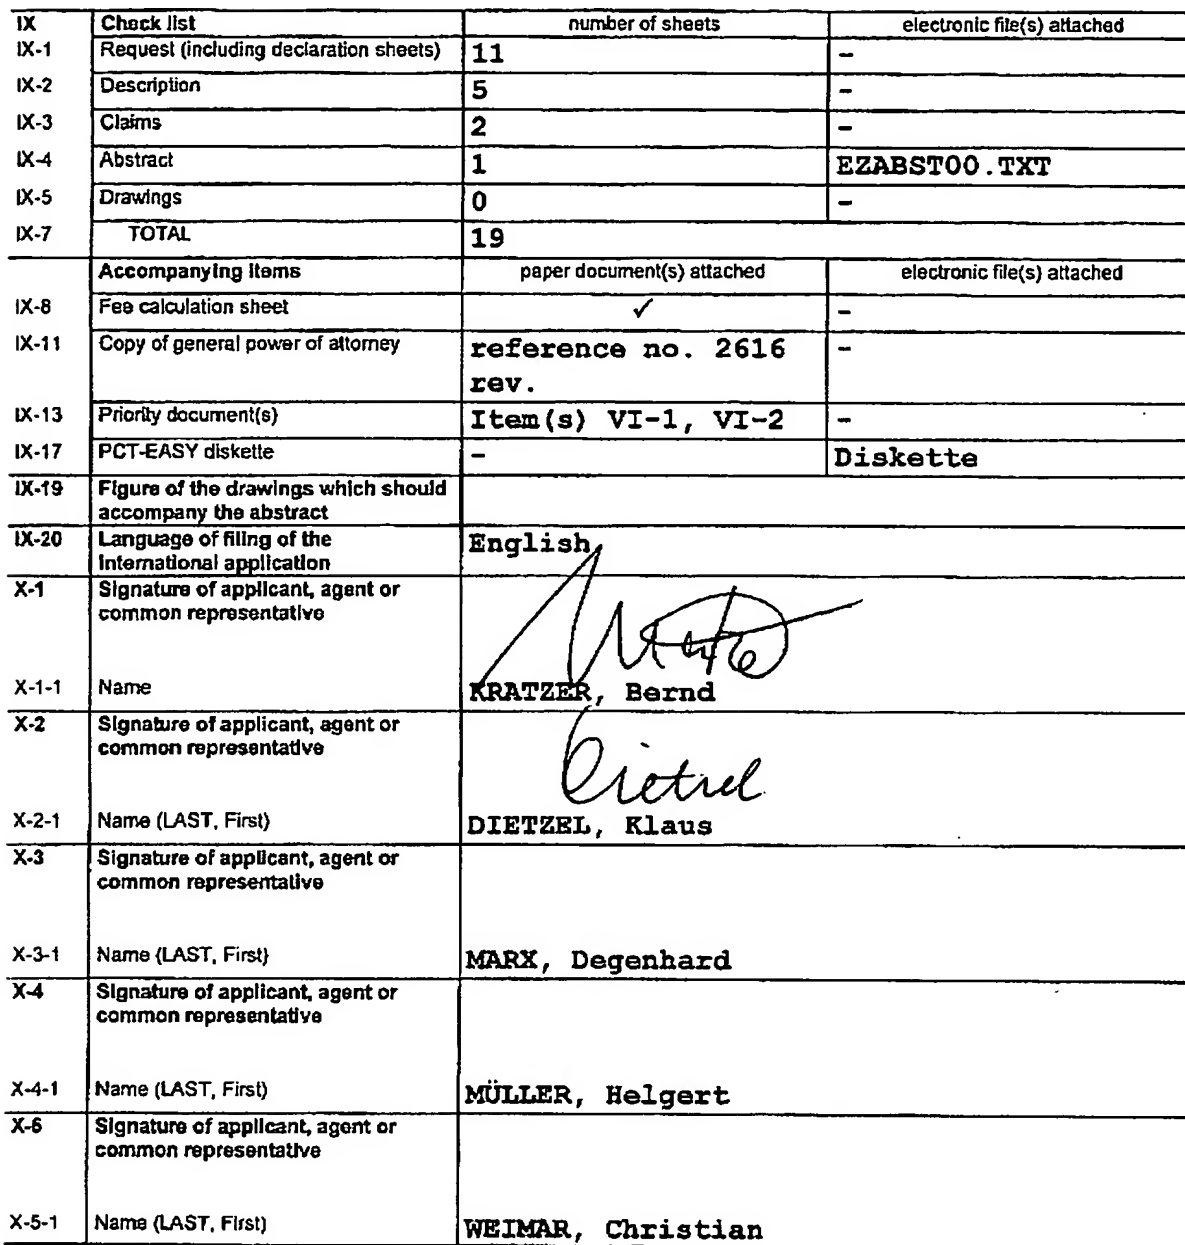 IX Check list number of sheets electronic file(s) attached
IX-1 Request (including declaration sheets) 11 -
IX-2 Description 5 -
IX-3 Claims 2 -
IX-4 Abstract 1 EZABST00.TXT
IX-5 Drawings 0 -
IX-7 TOTAL 19
Accompanying items paper document(s) attached electronic file(s) attached
IX-8 Fee calculation sheet ✓ -
IX-11 Copy of general power of attorney reference no. 2616 -
rev.
IX-13 Priority document(s) Item(s) VI-1, VI-2 -
IX-17 PCT-EASY diskette - Diskette
IX-19 Figure of the drawings which should
accompany the abstract
IX-20 Language of filing of the English
international application
X-1 Signature of applicant, agent or
common representative
X-1-1 Name KRATZER, Bernd
X-2 Signature of applicant, agent or
common representative
Dietzel
X-2-1 Name (LAST, First) DIETZEL, Klaus
X-3 Signature of applicant, agent or
common representative
X-3-1 Name (LAST, First) MARX, Degenhard
X-4 Signature of applicant, agent or
common representative
X-4-1 Name (LAST, First) MÜLLER, Helgert
X-5 Signature of applicant, agent or
common representative
X-5-1 Name (LAST, First) WEIMAR, Christian